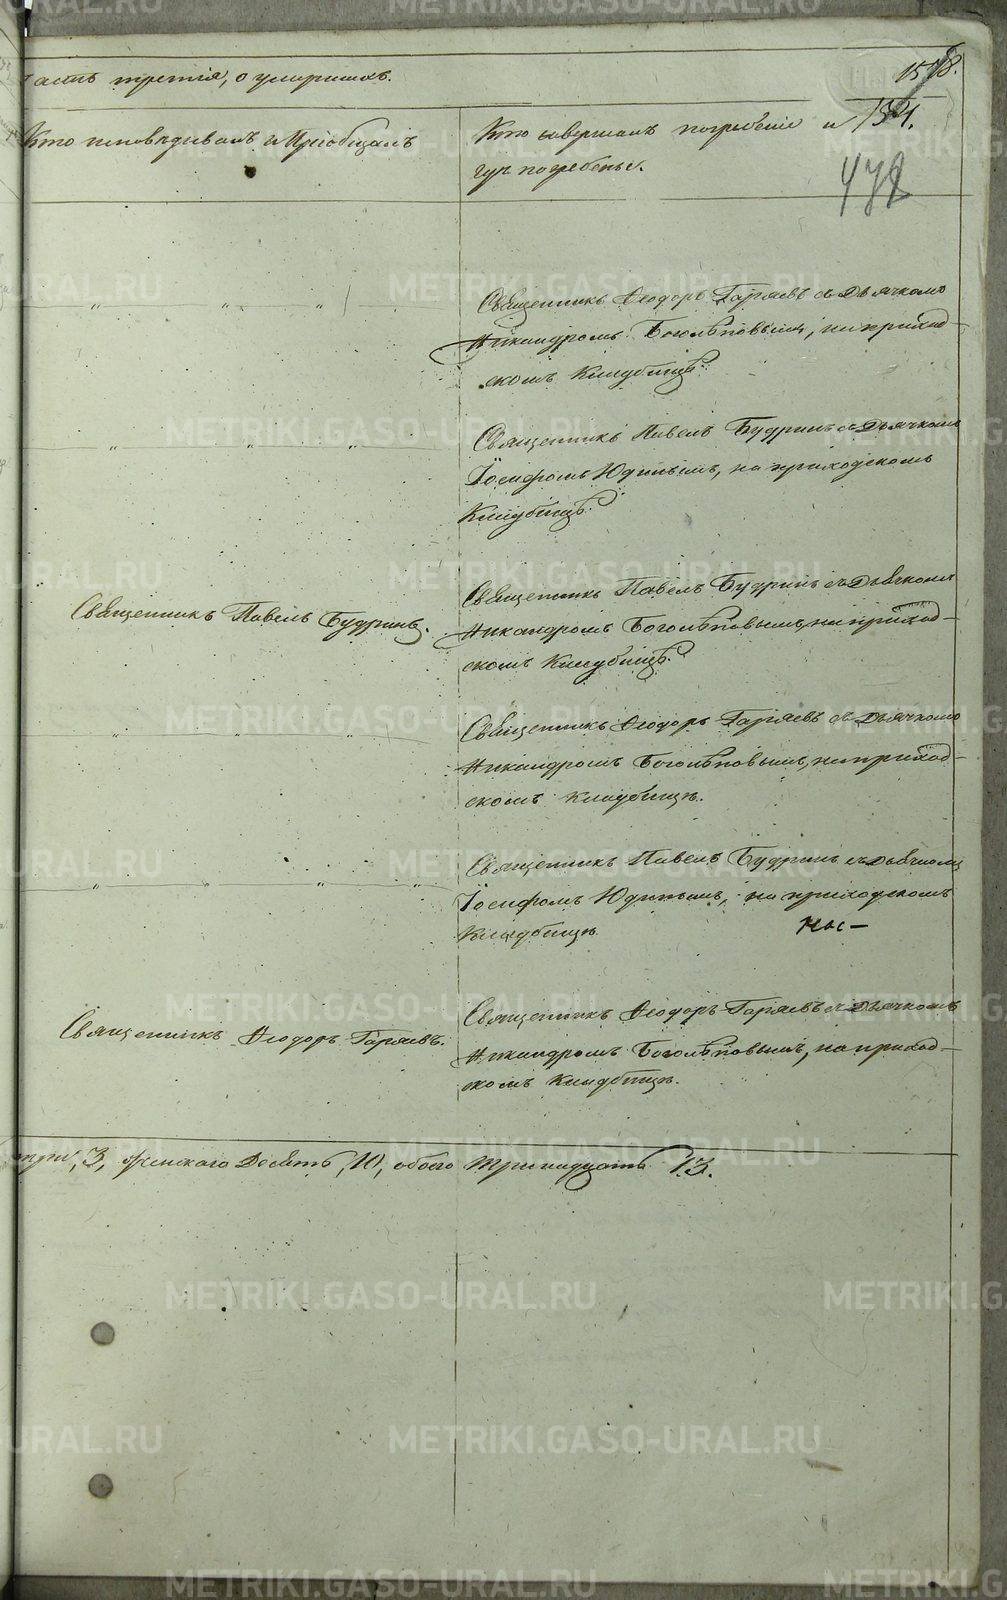 Часть третія, о умершихъ.
1578.
Кто исповѣдывалъ и Пріобщалъ
Кто совершалъ погребеніе и
1521.
гдѣ погребены.
478
Священникъ Ѳеодоръ Гаряевъ съ Дьячкомъ
Никандромъ Боголѣповымъ, на приход-
скомъ Кладбищѣ.
Священникъ Павелъ Будринъ съ Дьячкомъ
Іосифомъ Юдинымъ, на приходскомъ
Кладбищѣ.
Священникъ Павелъ Будринъ.
Священникъ Павелъ Будринъ съ Дьячкомъ
Никандромъ Боголѣповымъ, на приход-
скомъ Кладбищѣ.
Священникъ Ѳеодоръ Гаряевъ съ Дьячкомъ
Никандромъ Боголѣповымъ, на приход-
скомъ кладбищѣ.
Священникъ Павелъ Будринъ съ Дьячкомъ
Іосифомъ Юдинымъ, на приходскомъ
Кладбищѣ.
Священникъ Ѳеодоръ Гаряевъ.
Священникъ Ѳеодоръ Гаряевъ съ Дьячкомъ
Никандромъ Боголѣповымъ, на приход-
скомъ Кладбищѣ.
3, женскаго Десять, 10, обоего Тринадцать 13.
METRIKI.GASO-URAL.RU